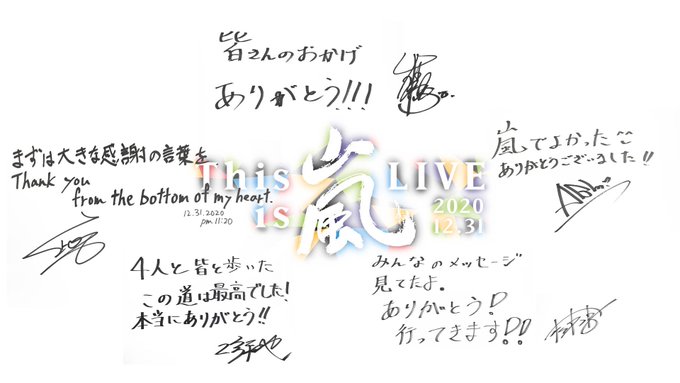 皆さんのおかげ
ありがとう!!!
まずは大きな感謝の言葉を。
Thank you
from the bottom of my heart.
12.31.2020
pm.11:20
嵐でよかった
ありがとうございました!!
This is 嵐 LIVE
2020
12.31
4人と皆と歩いた
この道は最高でした!
本当にありがとう!!
みんなのメッセージ
見てたよ。
ありがとう!
行ってきます!!